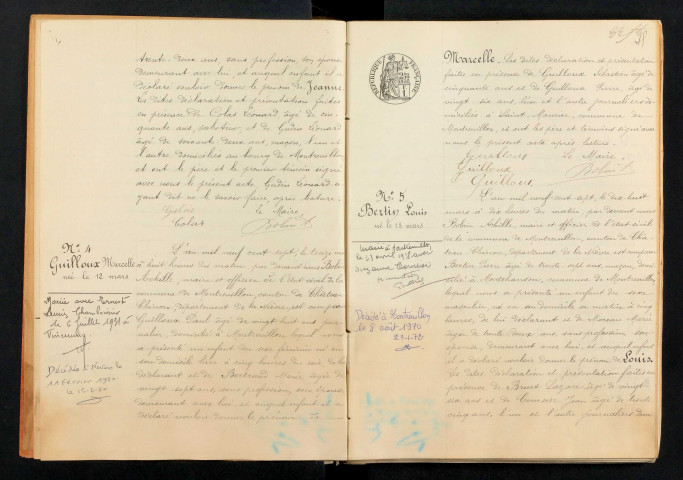 trente deux ans, sans profession, son épouse
demeurant avec lui, et auquel enfant il a
déclaré vouloir donner le prénom de Jeanne
Les dites déclaration et présentation faites
en présence de Colas Léonard âgé de cin-
quante ans, sabotier, et de Gudin Léonard
âgé de soixante deux ans, maçon, l'un et
l'autre domiciliés au bourg de Montreuillon
et ont le père et le premier témoin signé
avec nous le présent acte, Gudin Léonard a-
yant dit ne le savoir faire, après lecture.
Le Maire,
Colas
N° 4
Guilloux Marcelle
née le 12 mars
L'an mil neuf cent sept, le treize mars
à huit heures du matin par devant nous Bobin
Achille, maire et officier de l'état civil de la
commune de Montreuillon, canton de Château-
Chinon, département de la Nièvre, est comparu
Guilloux Paul âgé de vingt huit ans, jour-
nalier, domicilié à Montreuillon lequel nous
a présenté un enfant du sexe féminin née
en son domicile hier à cinq heures du soir de lui
déclarant et de
vingt sept ans, sans profession, son épouse
demeurant avec lui, et auquel enfant il a
déclaré vouloir donner le prénom de
Mariée avec
le 6 juillet 1931 à
Décédée à
11 février 1980
Marcelle. Les dites déclaration et présentation
faites en présence de Guilloux Sébastien âgé de
cinquante ans et de Guilloux Pierre, âgé de
vingt six ans, l'un et l'autre journaliers do-
miciliés à Saint Maurice, commune de
Montreuillon, et ont les père et témoins signé avec
nous le présent acte après lecture.
Guilloux Le Maire,
Guilloux
Guilloux
RÉPUBLIQUE FRANÇAISE
N° 5
Bertin Louis
né le 18 mars
L'an mil neuf cent sept, le dix huit
mars à dix heures du matin, par devant nous
Bobin Achille, maire et officier de l'état civil
de la commune de Montreuillon, canton de Châ-
teau Chinon, département de la Nièvre, est comparu
Bertin Pierre âgé de trente sept ans, maçon, domi-
cilié à commune de Montreuillon
lequel nous a présenté un enfant du sexe
masculin né en son domicile ce matin à cinq
heures, de lui déclarant et de Marie
âgée de trente deux ans sans profession son
épouse, demeurant avec lui, et auquel enfant
il a déclaré vouloir donner le prénom de Louis.
Les dites déclaration et présentation faites en
présence de Brunet Lazare âgé de vingt
six ans et de Jean âgé de trente
cinq ans, l'un et l'autre journaliers
Marié à
le 23 avril 1931 avec
Décédé à Montreuillon
le 8 août 1970